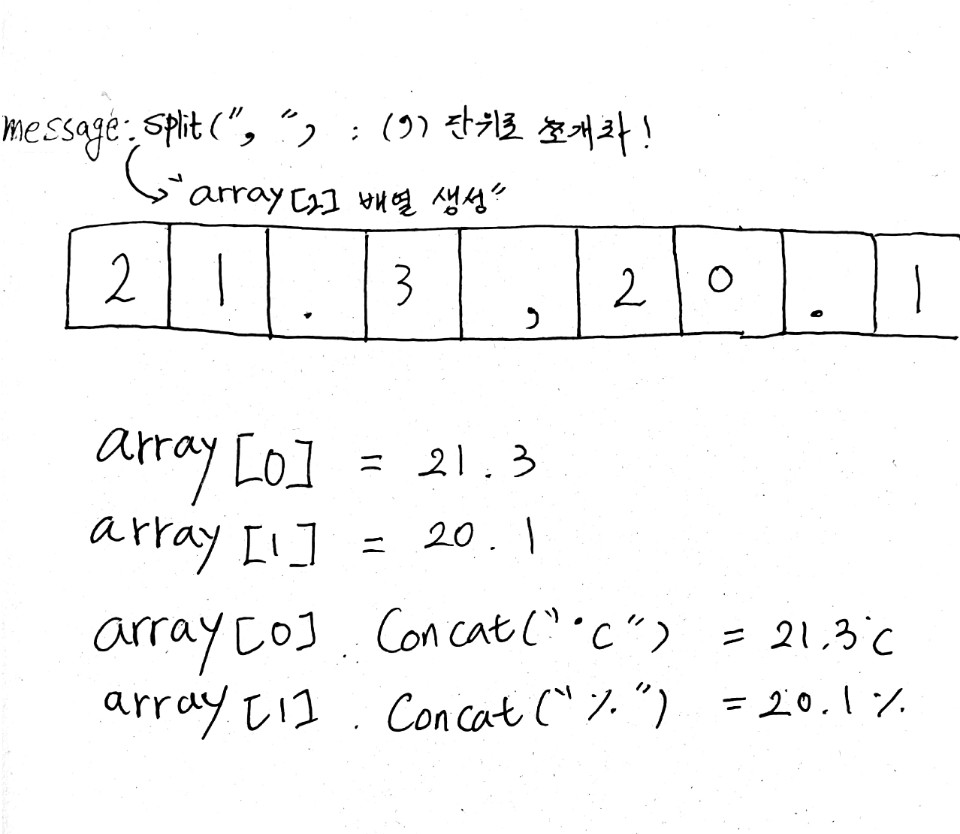 message.split(", ") : (,) 단위로 쪼개라!
"array[2] 배열 생성"
2 1 . 3 , 2 0 . 1
array[0] = 21.3
array[1] = 20.1
array[0].Concat("°C") = 21.3°C
array[1].Concat("%") = 20.1%